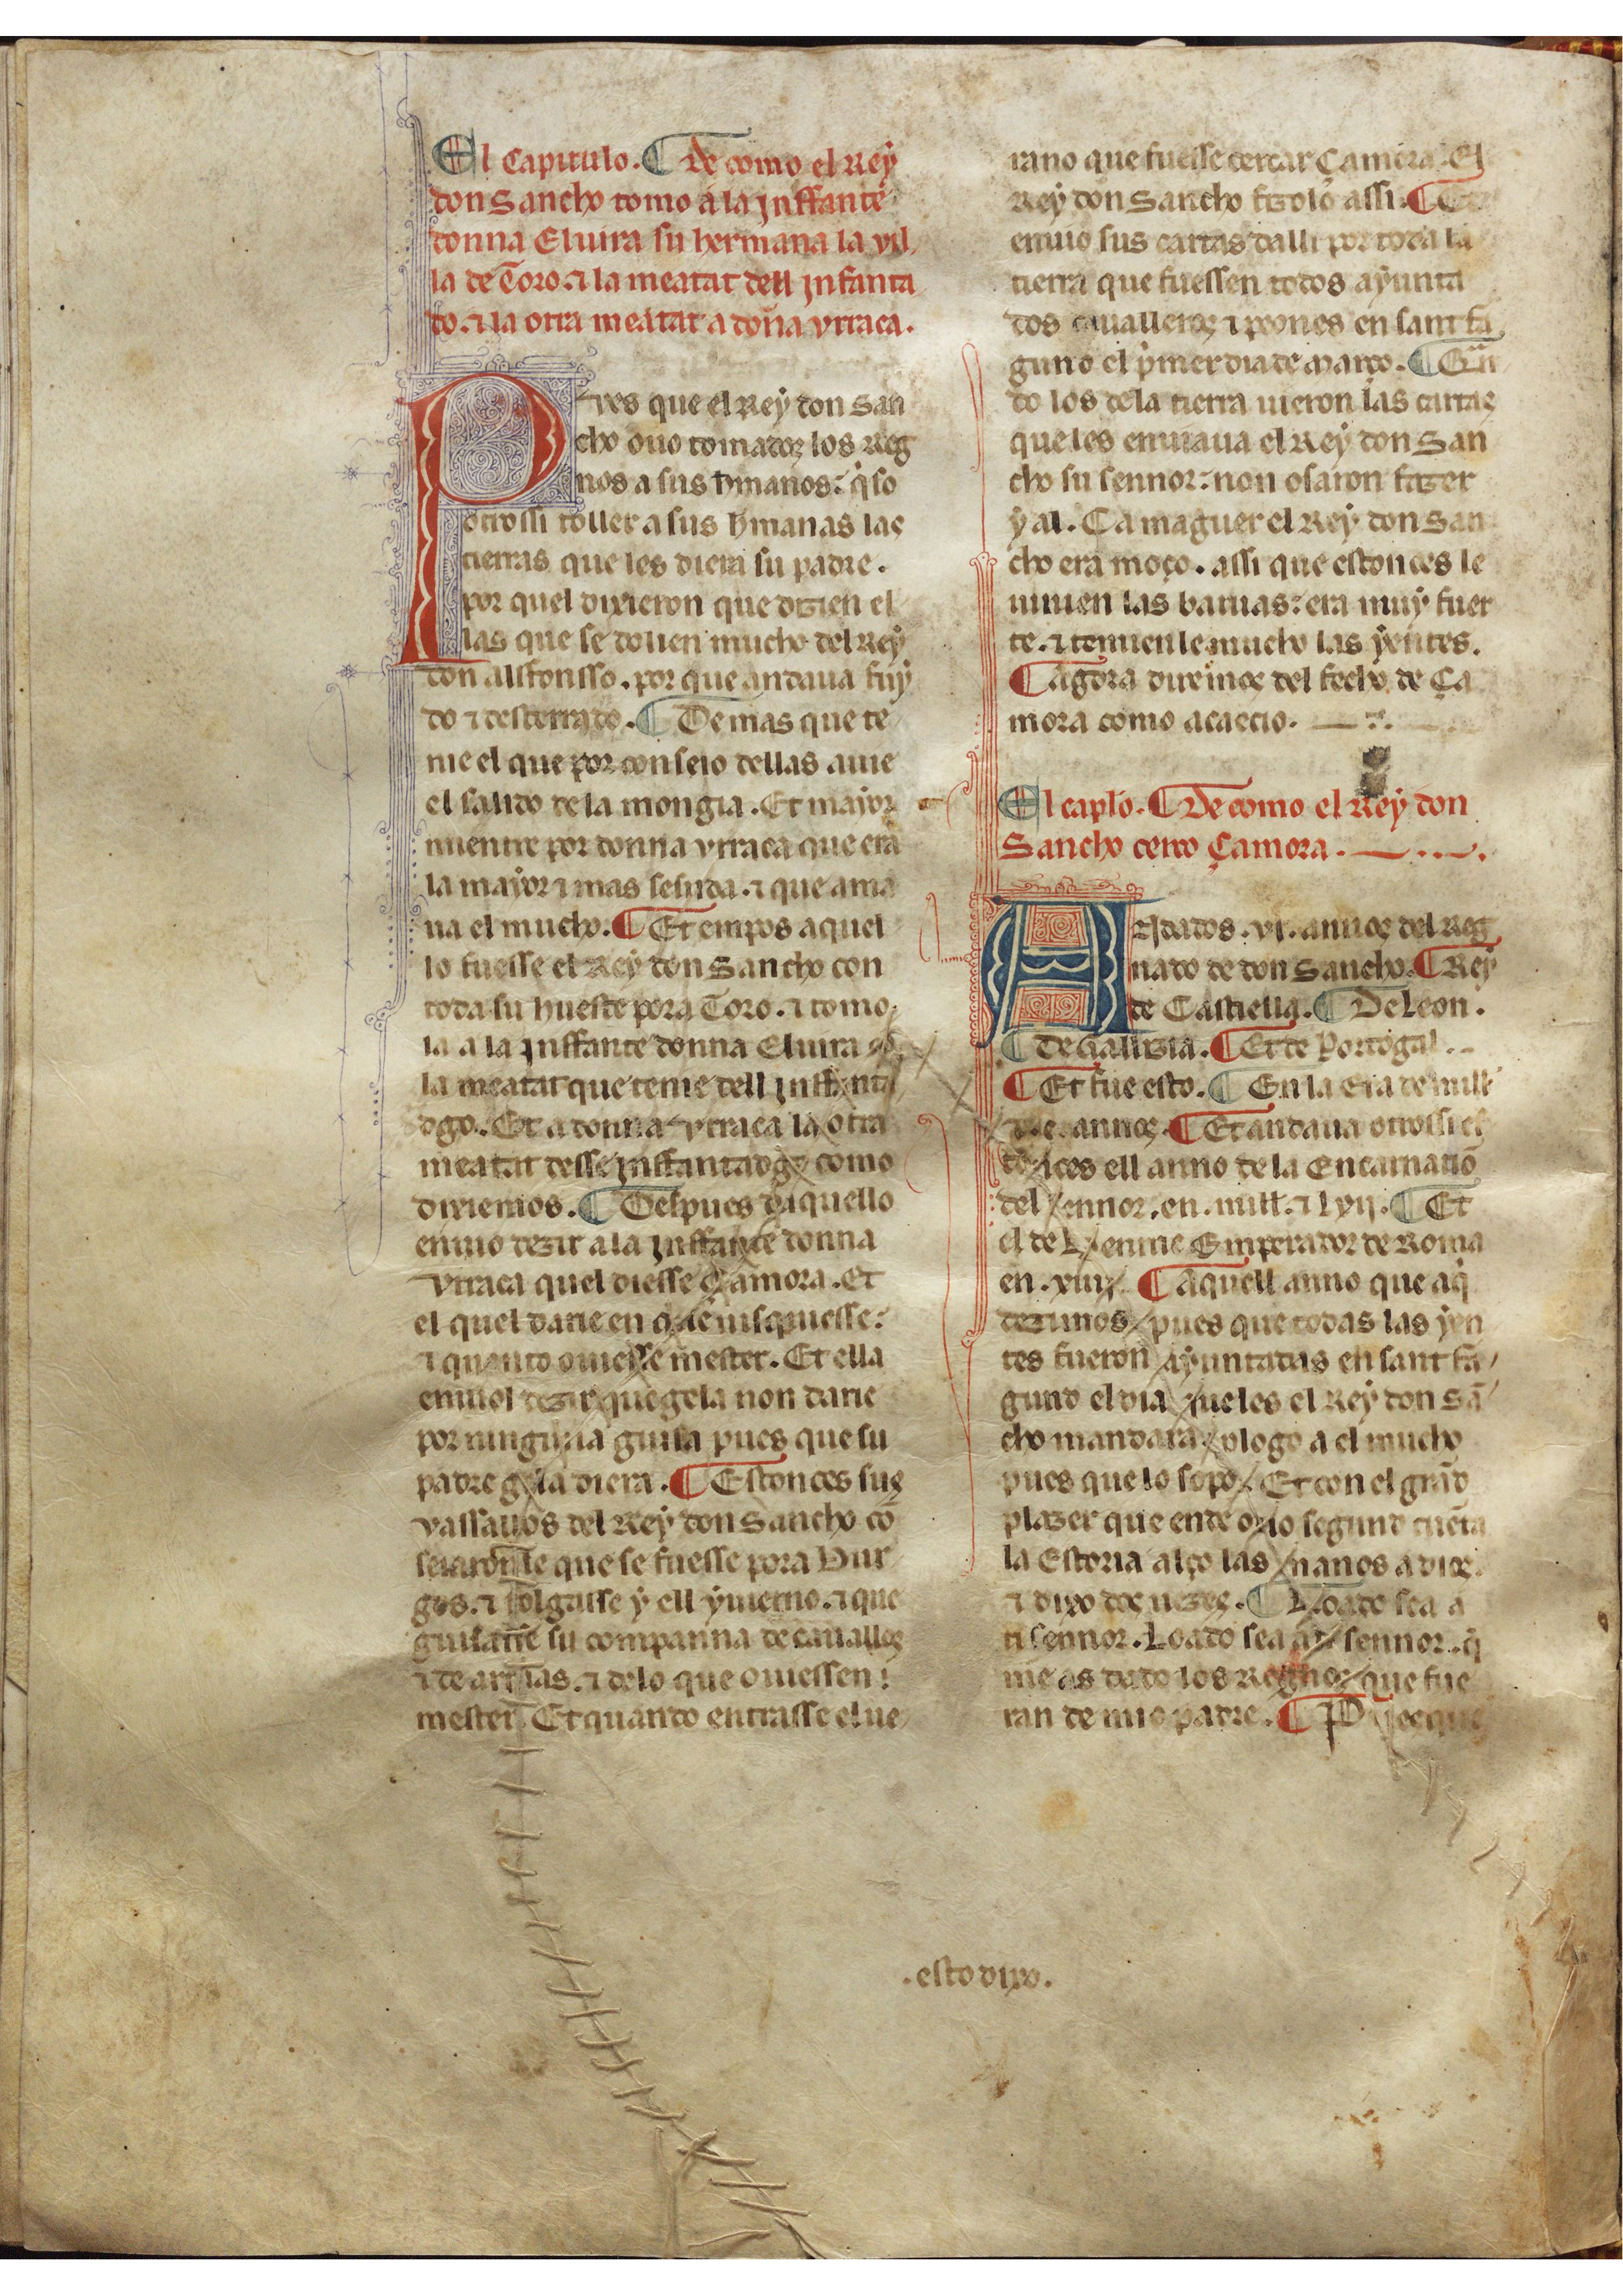 El Capitulo. ¶ De como el Rey
don Sancho tomo a la Jnffante
donna Eluira su hermana la vil
la de Toro. ⁊ la meatat dell jnfanta
do. ⁊ la otra meatat a doña vrraca.
Pves que el Rey don San
cho ouo tomados los Reg
nos a sus h̓manos: q̓so
otrossi toller a sus h̓manas las
tierras que les diera su padre.
por quel dixieron que dizien el
las que se dolien mucho del Rey
don alffonsso. por que andaua fuy
do ⁊ desterrado. ¶ Demas que te
nie el que por conseio dellas auie
el salido de la mongia. Et mayor
mientre por donna vrraca que era
la mayor ⁊ mas sesuda. ⁊ que ama
ua el mucho. ¶ Et empos aquel
lo fuesse el Rey don Sancho con
toda su hueste pora Toro. ⁊ tomo
la a la Jnffante donna Eluira
la meatat que tenie dell Jnffanta
dgo. Et a donna vrraca la otra
meatat desse jnffantadgo como
dixiemos. ¶ Despues daquello
enuio dezir a la Jnffante donna
Vrraca quel diesse Çamora. Et
el quel darie en que uisquiesse:
⁊ quanto ouiesse mester. Et ella
enuiol dezir que gela non darie
por ninguna guisa pues que su
padre gela diera. ¶ Estonces sus
vassallos del Rey don Sancho cō
seiaronle que se fuesse pora Bur
gos. ⁊ folgasse y ell yuierno. ⁊ que
guisasse su companna de caualłos
⁊ de armas. ⁊ de lo que ouiessen
mester. Et quando entrasse el ue
rano que fuesse cercar Çamora. El
Rey don Sancho fizolo assi. ¶ Et
enuio sus cartas dalli por toda la
tierra que fuessen todos ayunta
dos caualleros ⁊ peones en sant fa
gund el p̓mer dia de março. ¶ Quā
do los de la tierra uieron las cartas
que les enuiaua el Rey don San
cho su sennor: non osaron fazer
y al. Ca maguer el Rey don San
cho era moço. assi que estonces le
uinien las baruas: era muy fuer
te. ⁊ temien le mucho las yentes.
¶ Agora diximos del fecho de Ça
mora como acaecio.
El capło. ¶ De como el Rey don
Sancho cerco Çamora.
Andados .vi. annos del Reg
nado de don Sancho. ¶ Rey
de Castiella. ¶ De Leon.
¶ De Gallizia. ¶ Et de Portogal.
¶ Et fue esto. ¶ En la Era de mill
annos. ¶ Et andaua otrossi es
tonces ell anno de la Encarnatiō
del sennor. en. mill. ⁊ Lxii. ¶ Et
el de Henrric Emperador de Roma
en. xiiii. ¶ Aquell anno que aq̓
dezimos pues que todas las yen
tes fueron ayuntadas en sant fa
gund el dia que les el Rey don Sā
cho mandara: plogo a el mucho
pues que lo sopo. Et con el grād
plazer que ende ouo segund cuēta
la Estoria alço las manos a dios.
⁊ dixo dos uezes. ¶ Loado sea a
ti sennor. Loado sea a ti sennor. q̄
me as dado los Regnos que fue
ran de mio padre. ¶ Pves que
.esto dixo.